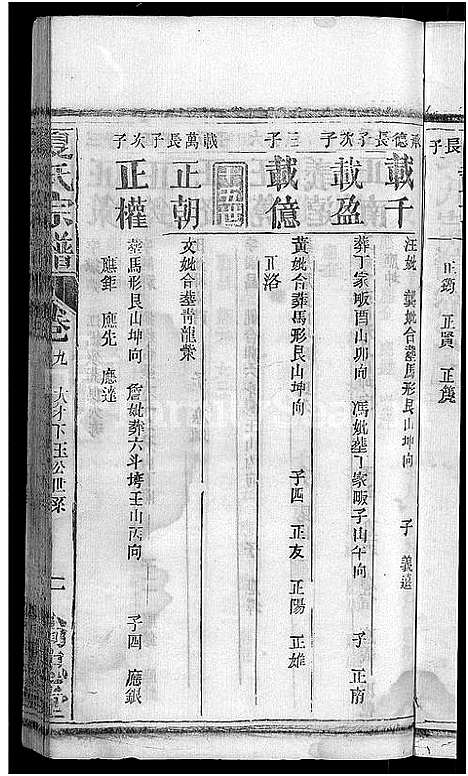 長子
正鈞 正賢 正篪
承德長子
載千
汪妣 龔妣合葬馬形艮山坤向 子 義達
次子
載盈
葬丁家畈酉山卯向 馮妣葬丁家畈子山午向 子 正南
三子
載億
黃妣合葬馬形艮山坤向 子四 正友 正陽 正雄
正洛
載萬長子
正朝
文妣合葬靑龍嘴
次子
正權
葬馬形艮山坤向 詹妣葬六斗塆壬山丙向 子四 應銀
應鉅 應先 應達
夏氏宗譜
卷九 大分下玉公世系 一